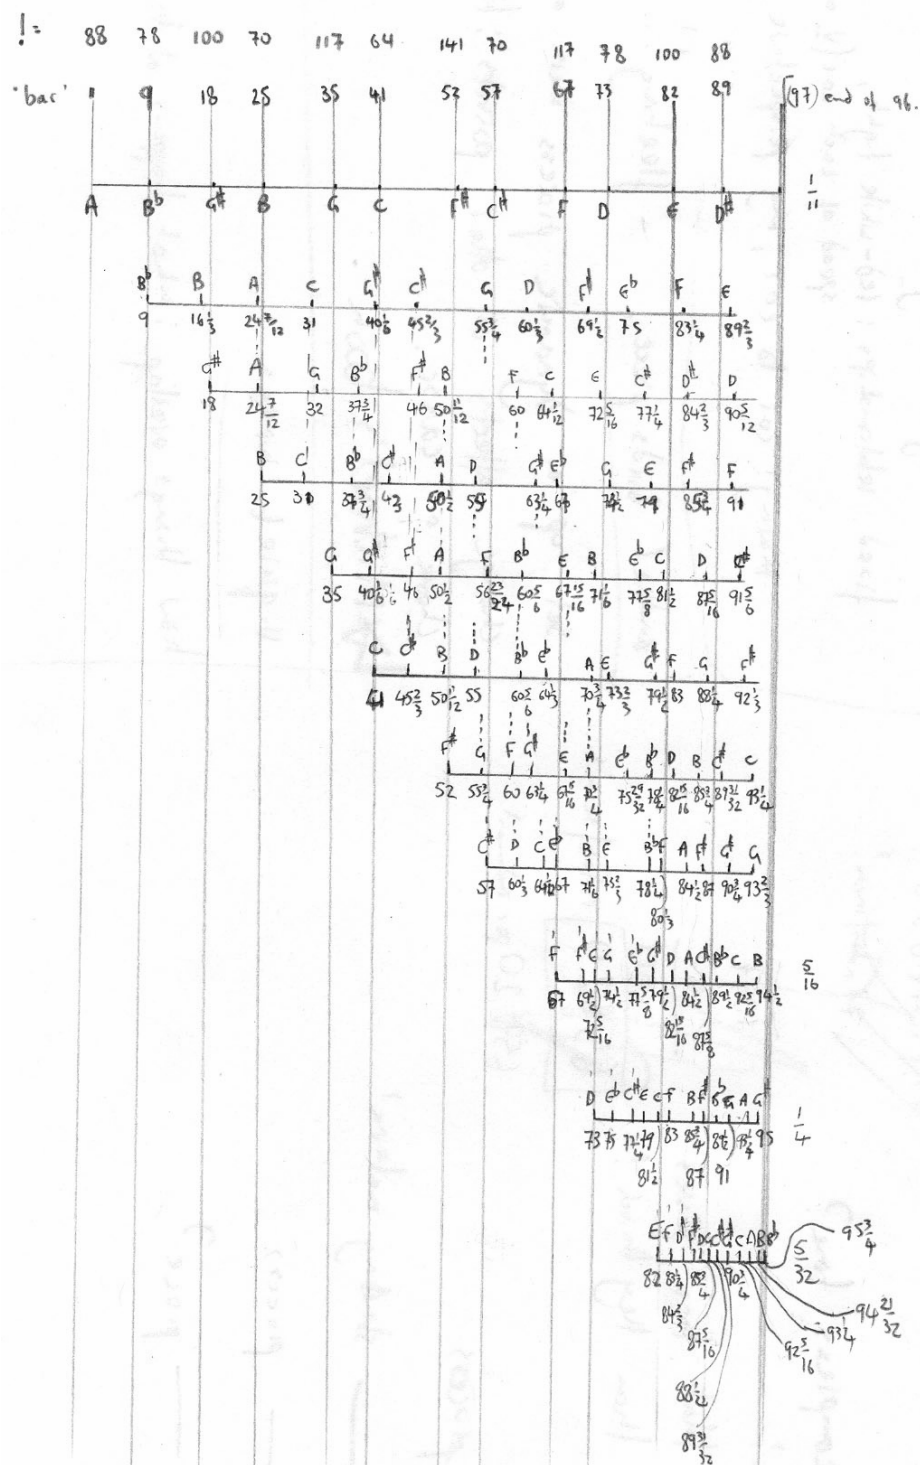 != 88 78 100 70 117 64 141 70 117 78 100 88
'bar' 1 9 18 25 35 41 52 57 67 73 82 89 (97) end of 96.
A B♭ G# B G C F# C# F D E D# 1/11
B♭ B A C G# C# G D F# E♭ F E
9 16 1/3 24 7/12 31 40 1/6 45 2/3 55 3/4 60 1/3 69 1/2 75 83 1/4 89 2/3
G# A G B♭ F# B F C E C# D# D
18 24 7/12 32 37 3/4 46 50 11/12 60 64 1/12 72 5/16 77 1/4 84 2/3 90 5/12
B C B♭ C# A D G# E♭ G E F# F
25 31 37 3/4 43 50 1/2 55 63 1/4 67 74 1/2 79 85 3/4 91
G G# F# A F B♭ E B E♭ C D C#
35 40 1/6 46 50 1/2 56 23/24 60 5/6 67 15/16 71 1/6 77 5/8 81 1/2 87 5/16 91 5/6
C C# B D B♭ E♭ A E G# F G F#
41 45 2/3 50 11/12 55 60 5/6 64 1/3 70 3/4 73 2/3 79 1/2 83 88 1/4 92 1/3
F# G F G# E A E♭ B♭ D B C# C
52 55 3/4 60 63 1/4 67 15/16 70 3/4 75 29/32 78 1/4 82 15/16 85 3/4 89 31/32 93 1/4
C# D C E♭ B E B♭ F A F# G# G
57 60 1/3 64 1/12 67 71 1/6 75 2/3 78 1/4 84 1/2 87 90 3/4 93 2/3
80 1/3
F F# E G E♭ G# D A C# B♭ C B 5/16
67 69 1/2 74 1/2 77 5/8 79 1/2 84 1/2 89 1/2 92 5/16 94 1/2
72 5/16 82 15/16 87 5/8
D E♭ C# E C F B F# B♭ G A G# 1/4
73 75 77 1/4 79 83 85 3/4 89 1/2 93 1/4 95
81 1/2 87 91
E F D# F# D G C# G# C A B B♭ 5/32 95 3/4
82 83 1/4 85 3/4 90 3/4
84 2/3 94 21/32
87 5/16 92 5/16 93 1/4
88 1/4
89 31/32